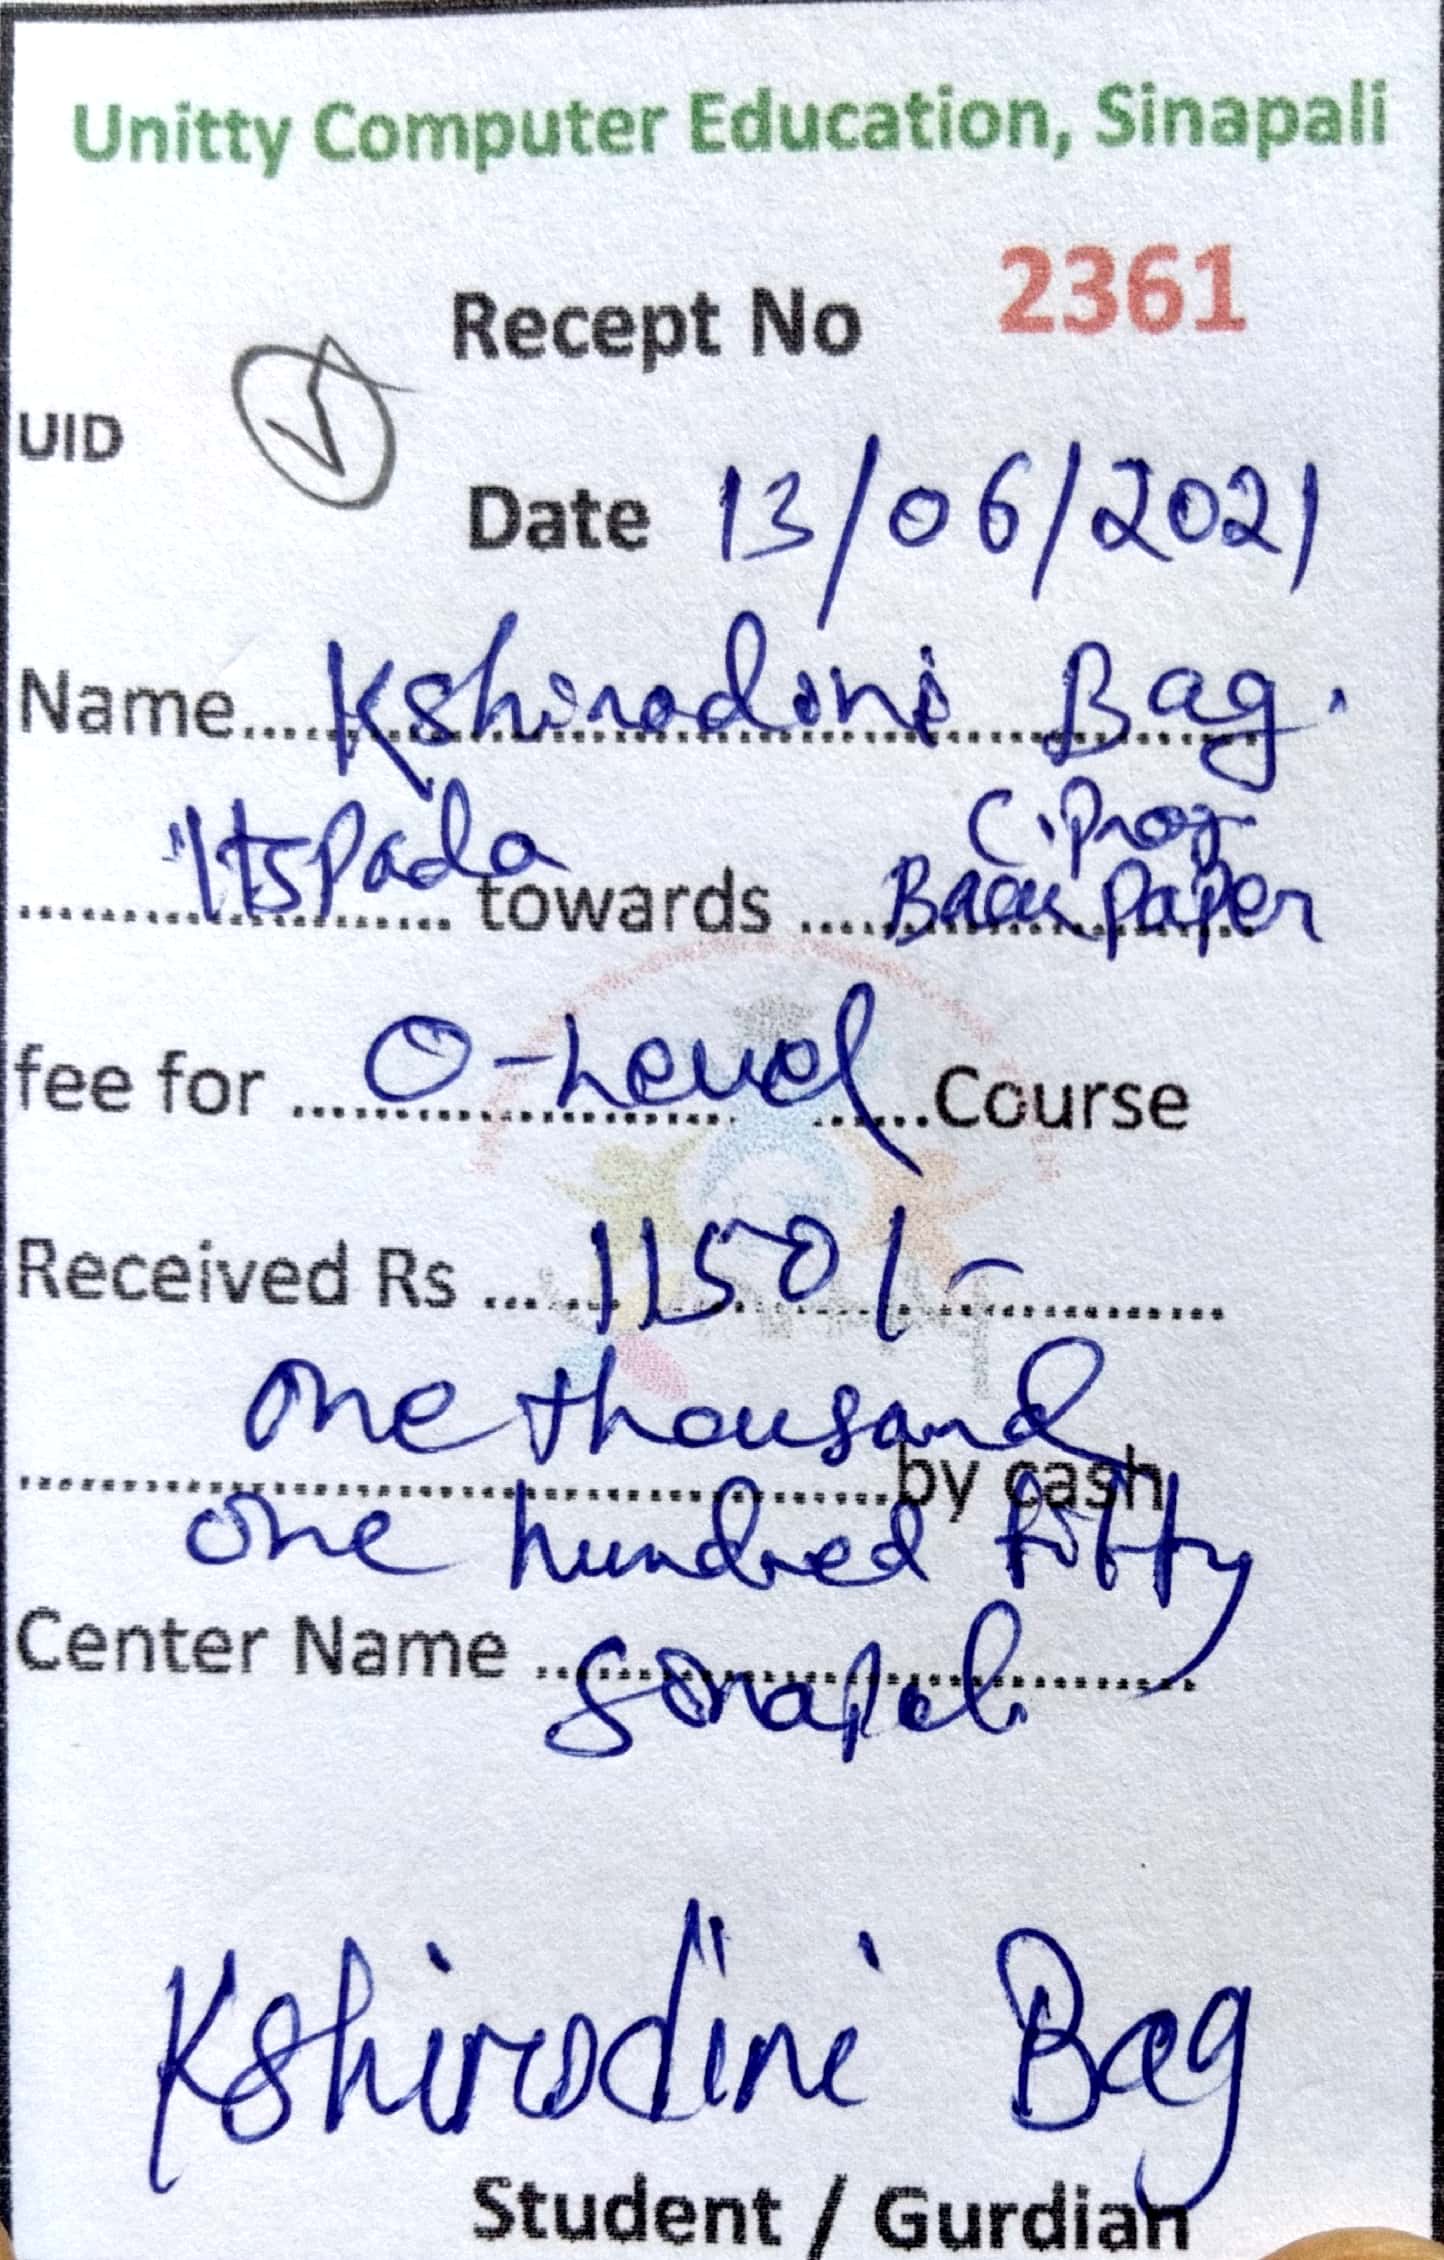 Unitty Computer Education, Sinapali
Recept No 2361
UID
Date 13/06/2021
Name.... Kshirodini Bag.
C. Prog
Itspada towards .... Back Paper
fee for .... O-Level ....Course
Received Rs .... 1150/-
one thousand
....by cash
one hundred fifty
Center Name .... Sinapali
Kshirodini Bag
Student / Gurdian